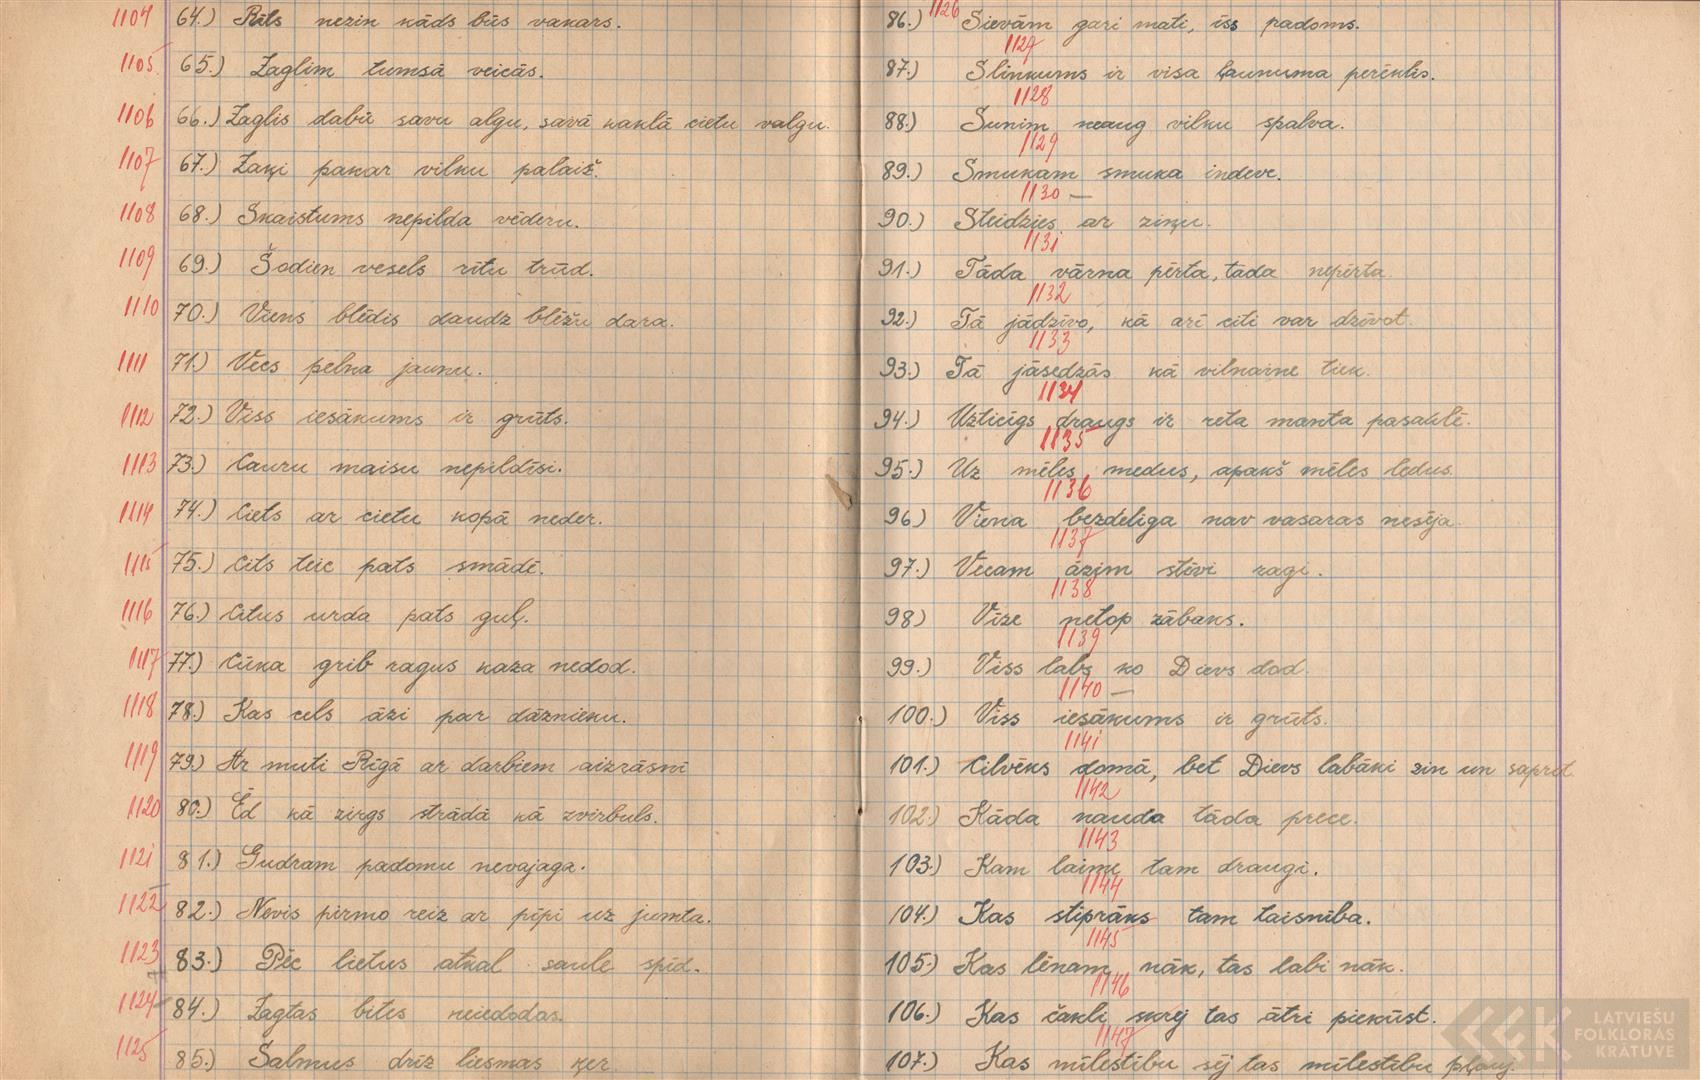 1104 64.) Rīts nezin kāds būs vakars.
1105 65.) Zaglim tumsā veicās.
1106 66.) Zaglis dabū savu algu, savā kaklā cietu valgu.
1107 67.) Zaķi pakar vilku palaiž.
1108 68.) Skaistums nepilda vēderu.
1109 69.) Šodien vesels rītu trūd.
1110 70.) Viens blēdis daudz blēžu dara.
1111 71.) Vecs pelna jaunu.
1112 72.) Viss iesākums ir grūts.
1113 73.) Cauru maisu nepildīsi.
1114 74.) Ciets ar cietu kopā neder.
1115 75.) Cits teic pats smādē.
1116 76.) Citus urda pats guļ.
1117 77.) Cūka grib ragus kaza nedod.
1118 78.) Kas cels āzi par dāznieku.
1119 79.) Ar muti Rīgā ar darbiem aizkrāsnī
1120 80.) Ēd kā zirgs strādā kā zvirbuls.
1121 81.) Gudram padomu nevajaga.
1122 82.) Nevis pirmo reiz ar pīpi uz jumta.
1123 83.) Pēc lietus atkal saule spīd.
1124 84.) Zagtas bites neiedodas.
1125 85.) Salmus drīz liesmas ķer.
86.) 1126 Sievām gari mati, īss padoms.
1127
87.) Slinkums ir visa ļaunuma perēklis.
1128
88.) Sunim neaug vilku spalva.
1129
89.) Smukam smuka indeve.
1130 —
90.) Steidzies ar ziņu.
1131
91.) Tāda vārna pērta, tāda nepērta
1132
92.) Tā jādzīvo, kā arī citi var dzīvot.
1133
93.) Tā jāsedzās kā vilnaine tiek.
1134
94.) Uzticīgs draugs ir reta manta pasaulē.
1135
95.) Uz mēles medus, apakš mēles ledus.
1136
96.) Viena bezdelīga nav vasaras nesēja.
1137
97.) Vecam āzim stīvi ragi.
1138
98) Vīze netop zābaks.
1139
99.) Viss labs ko Dievs dod.
1140 —
100.) Viss iesākums ir grūts.
1141
101.) Cilvēks domā, bet Dievs labāki zin un saprot.
1142
102.) Kāda nauda tāda prece.
1143
103.) Kam laime tam draugi.
1144
104.) Kas stiprāks tam taisnība.
1145
105.) Kas lēnam nāk, tas labi nāk.
1146
106.) Kas čakli skrej tas ātri piekūst.
1147
107.) Kas mīlestību sēj tas mīlestību pļauj.
LATVIEŠU
FOLKLORAS
KRĀTUVE